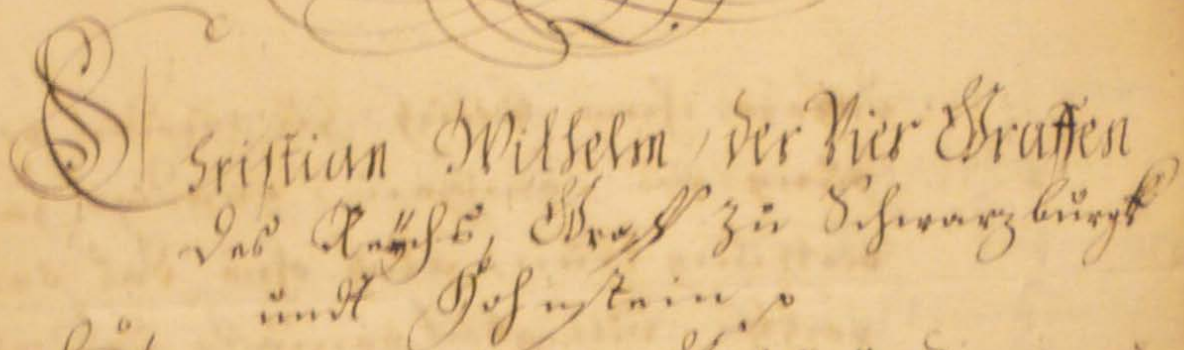 Christian Wilhelm, der Vier Graffen
des Reÿchs, Graff zu Schwarzburgk
undt Hohnstein